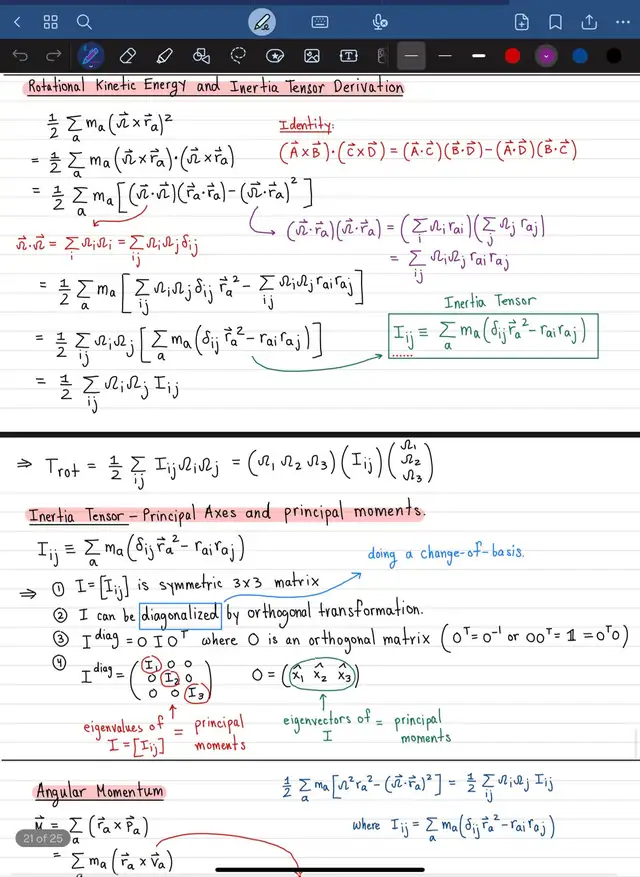 Rotational Kinetic Energy and Inertia Tensor Derivation
½ ∑ₐ mₐ (Ω⃗ × r⃗ₐ)²
Identity:
= ½ ∑ₐ mₐ (Ω⃗ × r⃗ₐ)·(Ω⃗ × r⃗ₐ)
(A⃗×B⃗)·(C⃗×D⃗) = (A⃗·C⃗)(B⃗·D⃗) − (A⃗·D⃗)(B⃗·C⃗)
= ½ ∑ₐ mₐ [(Ω⃗·Ω⃗)(r⃗ₐ·r⃗ₐ) − (Ω⃗·r⃗ₐ)²]
Ω⃗·Ω⃗ = ∑ᵢ ΩᵢΩᵢ = ∑ᵢⱼ ΩᵢΩⱼ δᵢⱼ
(Ω⃗·r⃗ₐ)(Ω⃗·r⃗ₐ) = (∑ᵢ Ωᵢ rₐᵢ)(∑ⱼ Ωⱼ rₐⱼ)
= ∑ᵢⱼ ΩᵢΩⱼ rₐᵢ rₐⱼ
= ½ ∑ₐ mₐ [∑ᵢⱼ ΩᵢΩⱼ δᵢⱼ r⃗ₐ² − ∑ᵢⱼ ΩᵢΩⱼ rₐᵢ rₐⱼ]
Inertia Tensor
= ½ ∑ᵢⱼ ΩᵢΩⱼ [∑ₐ mₐ (δᵢⱼ r⃗ₐ² − rₐᵢ rₐⱼ)]
Iᵢⱼ ≡ ∑ₐ mₐ (δᵢⱼ r⃗ₐ² − rₐᵢ rₐⱼ)
= ½ ∑ᵢⱼ ΩᵢΩⱼ Iᵢⱼ
⇒ Trot = ½ ∑ᵢⱼ Iᵢⱼ ΩᵢΩⱼ = (Ω₁ Ω₂ Ω₃)(Iᵢⱼ)(Ω₁ Ω₂ Ω₃)
Inertia Tensor – Principal Axes and principal moments.
Iᵢⱼ ≡ ∑ₐ mₐ (δᵢⱼ r⃗ₐ² − rₐᵢ rₐⱼ)
doing a change-of-basis.
⇒ ① I = [Iᵢⱼ] is symmetric 3x3 matrix
② I can be diagonalized by orthogonal transformation.
③ I^diag = O I Oᵀ where O is an orthogonal matrix (Oᵀ = O⁻¹ or OOᵀ = 𝟙 = OᵀO)
④ I^diag = (I₁ 0 0
0 I₂ 0
0 0 I₃)
O = (x̂₁ x̂₂ x̂₃)
eigenvalues of I = [Iᵢⱼ] = principal moments
eigenvectors of I = principal moments
Angular Momentum
½ ∑ₐ mₐ [Ω² rₐ² − (Ω⃗·r⃗ₐ)²] = ½ ∑ᵢⱼ ΩᵢΩⱼ Iᵢⱼ
M⃗ = ∑ₐ (r⃗ₐ × p⃗ₐ)
where Iᵢⱼ = ∑ₐ mₐ (δᵢⱼ r⃗ₐ² − rₐᵢ rₐⱼ)
21 of 25
= ∑ₐ mₐ (r⃗ₐ × v⃗ₐ)